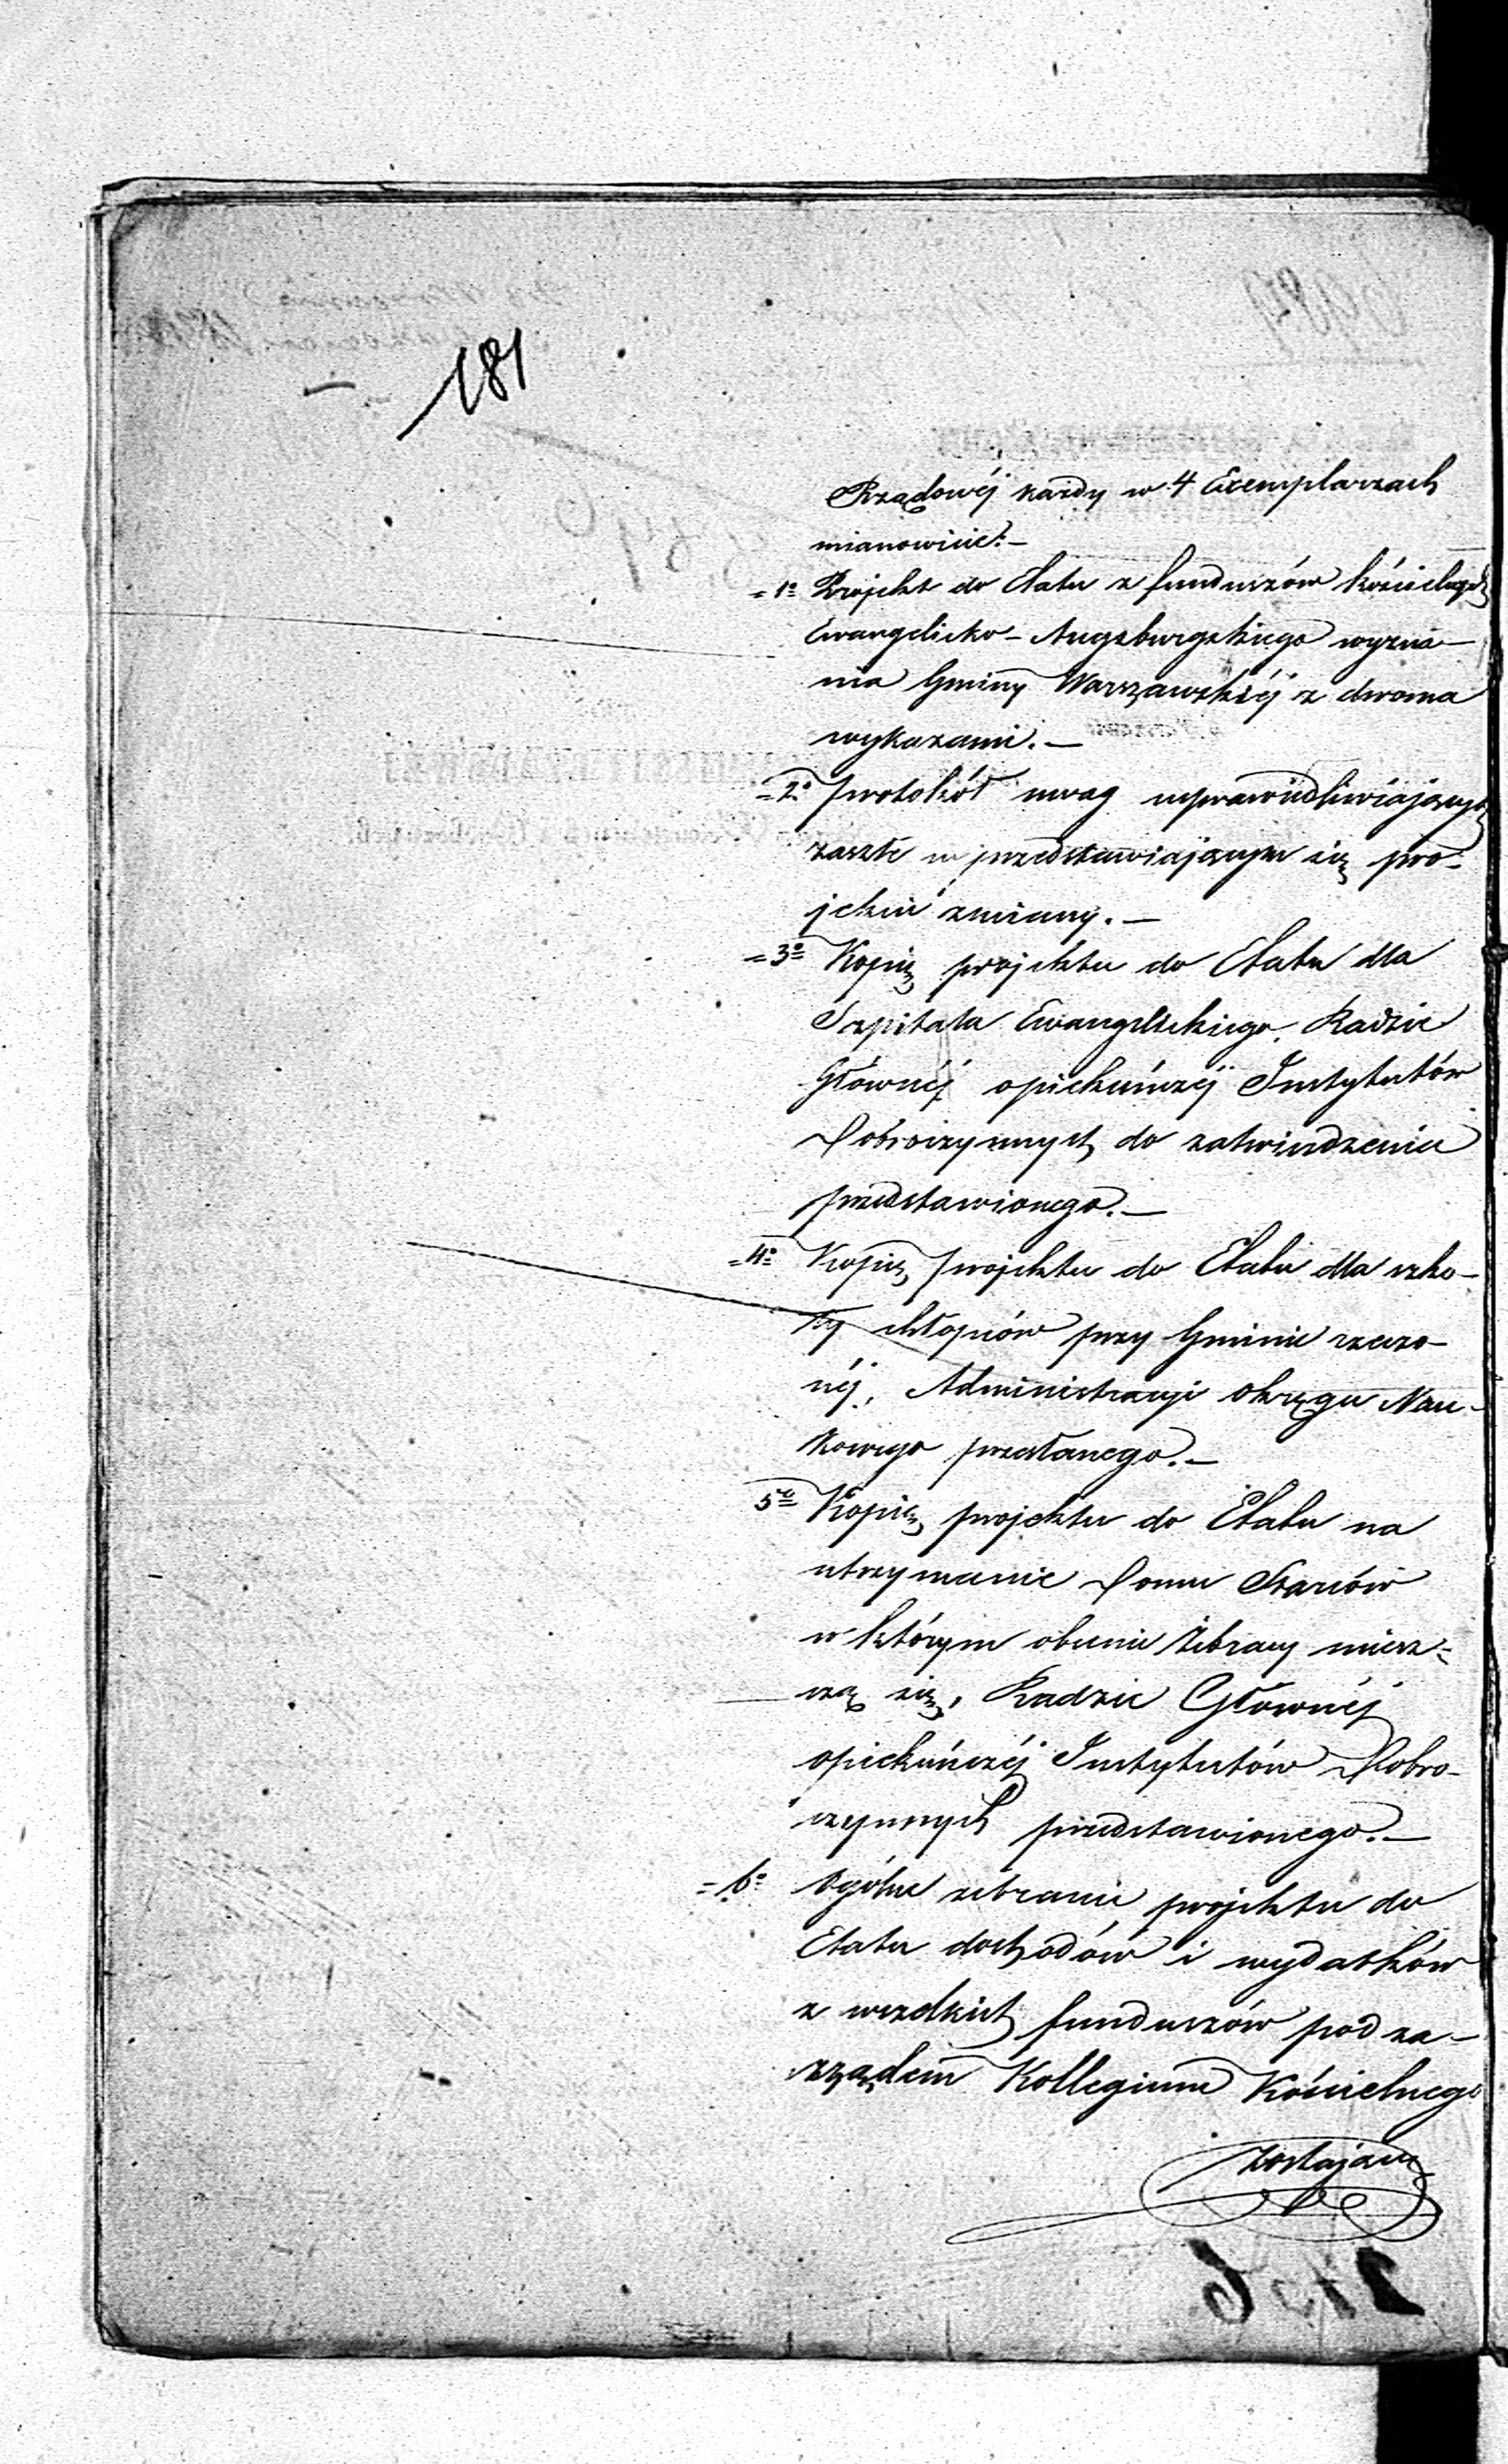 181
Rządowéj każdy w 4 Exemplarzach
mianowicie:—
=1º Projekt do Etatu z funduszów kościelnych
Ewangelicko-Augsburgskiego wyzna-
nia Gminy Warszawskiéj z dwoma
wykazami.—
=2º protokół uwag usprawiedliwiających
zaszłe w przedstawiającym się pro-
jekcie zmiany.—
=3º Kopię projektu do Etatu dla
Szpitala Ewangelickiego, Radzie
Głównéj opiekuńczéj Instytutów
Dobroczynnych do zatwierdzenia
przedstawionego.—
=4º Kopię projektu do Etatu dla szko-
ły chłopców przy Gminie rzeczo-
néj, Administracyi Okręgu Nau-
kowego przesłanego.—
5º Kopię projektu do Etatu na
utrzymanie Domu Starców
w którym obecnie żebracy miesz-
czą się, Radzie Głównéj
opiekuńczéj Instytutów Dobro-
czynnych przedstawionego.—
=6º Ogólne zebranie projektu do
Etatu dochodów i wydatków
z wszelkich funduszów pod za-
rządem Kollegium Kościelnego